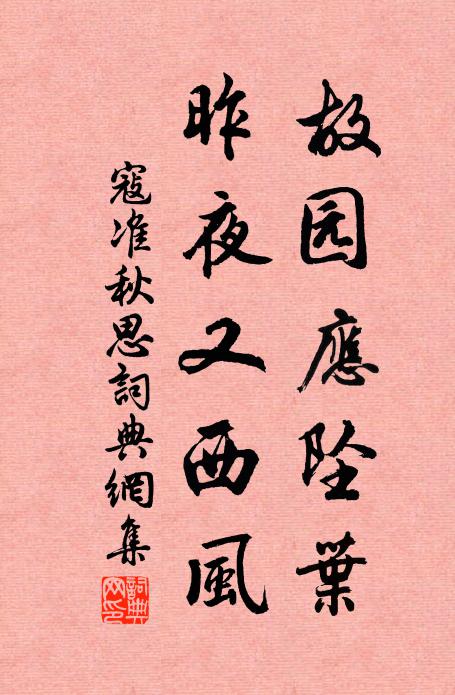 故园應坠葉
昨夜又西風
寇准秋思詞典網集
詞典網印